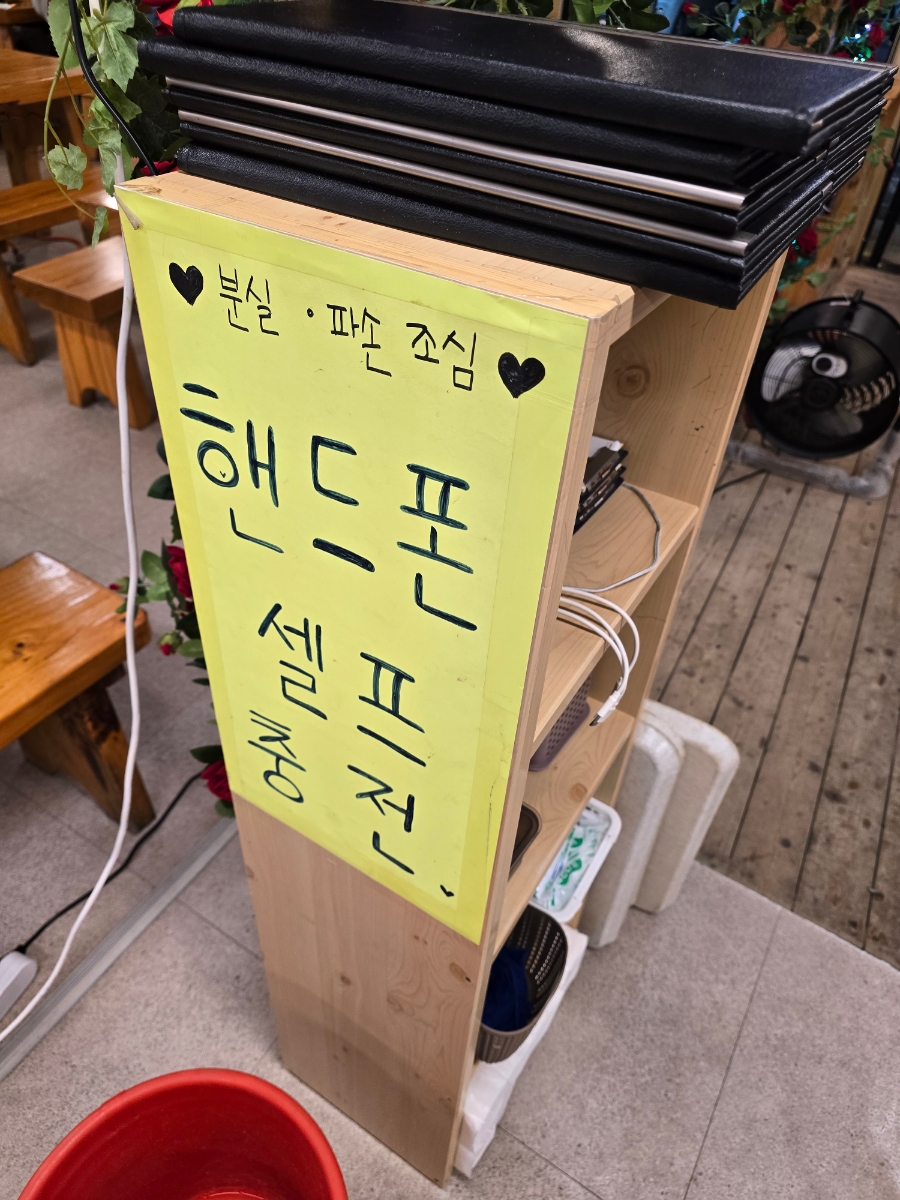 ♥ 분실 · 파손 조심 ♥
핸드폰
셀프
충전